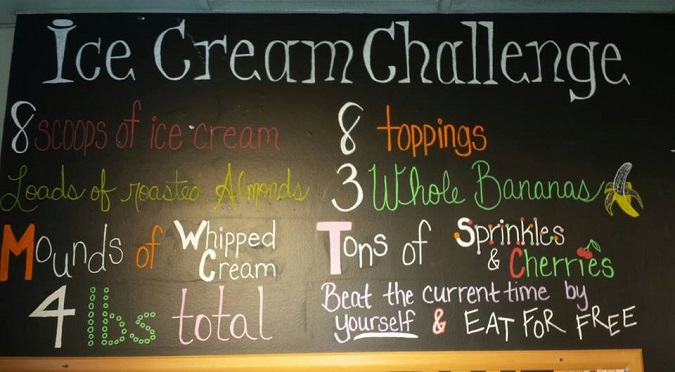 Ice Cream Challenge
8 scoops of ice cream
8 toppings
Loads of roasted Almonds
3 Whole Bananas
Mounds of Whipped Cream
Tons of Sprinkles & Cherries
4 lbs total
Beat the current time by
yourself & EAT FOR FREE